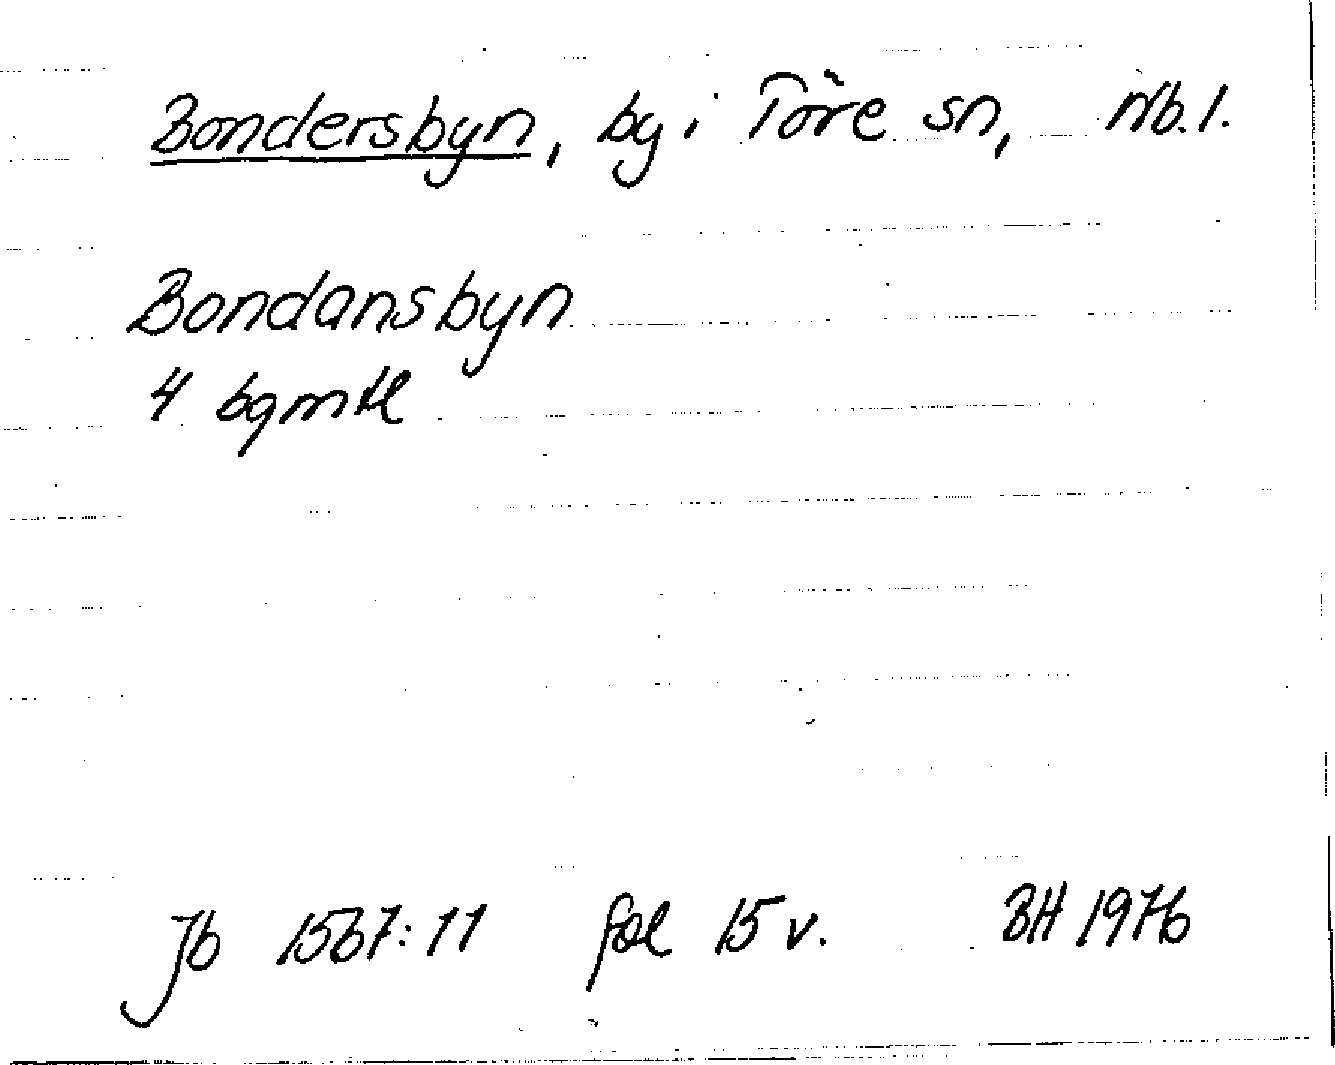 Bondersbyn, by i Töre sn, Nb.l.
Bondansbyn
4 bgmtl
Jb 1567:11 fol 15 v. BH 1976